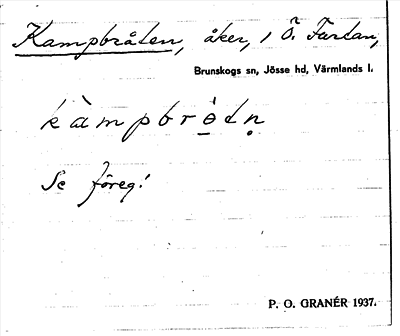 Kampbråten, åker, i Ö. Furtan,
Brunskogs sn, Jösse hd, Värmlands l.
kàmpbrò̱tṇ
Se föreg!
P. O. GRANÉR 1937.